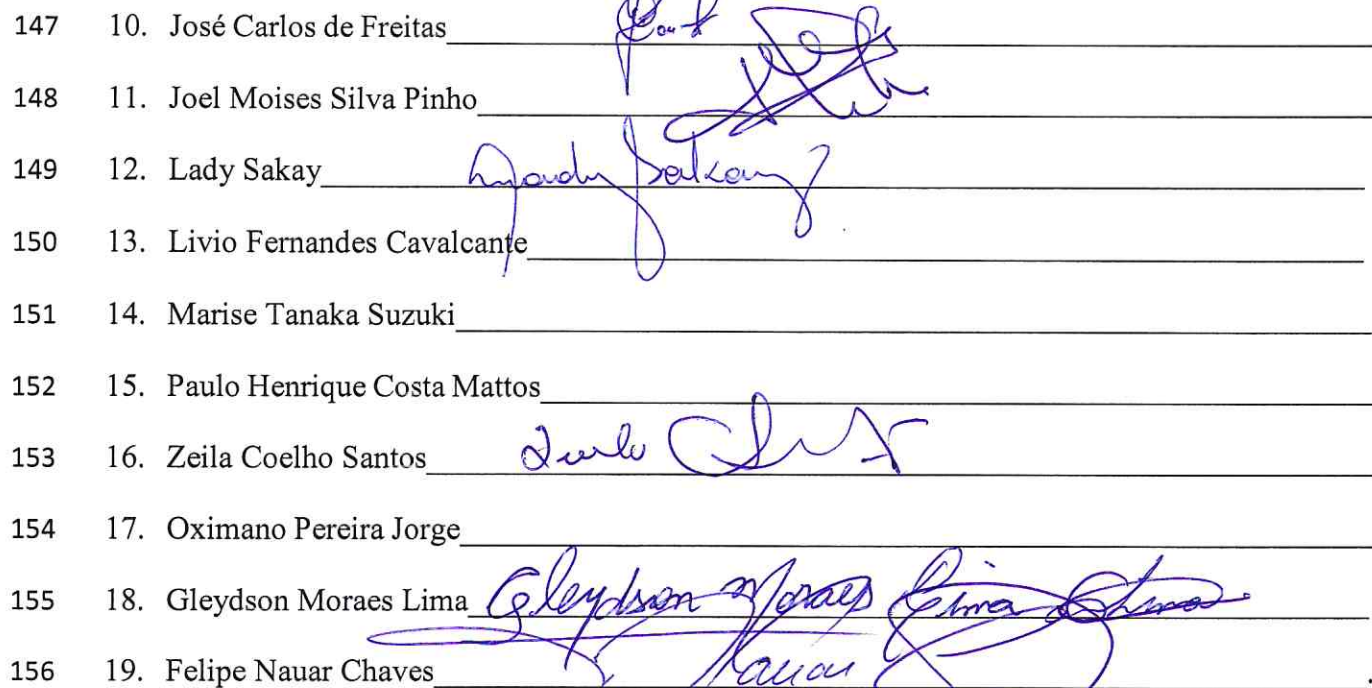 147 10. José Carlos de Freitas
148 11. Joel Moises Silva Pinho
149 12. Lady Sakay Sakay
150 13. Livio Fernandes Cavalcante
151 14. Marise Tanaka Suzuki
152 15. Paulo Henrique Costa Mattos
153 16. Zeila Coelho Santos
154 17. Oximano Pereira Jorge
155 18. Gleydson Moraes Lima Gleydson Moraes Lima
156 19. Felipe Nauar Chaves Nauar